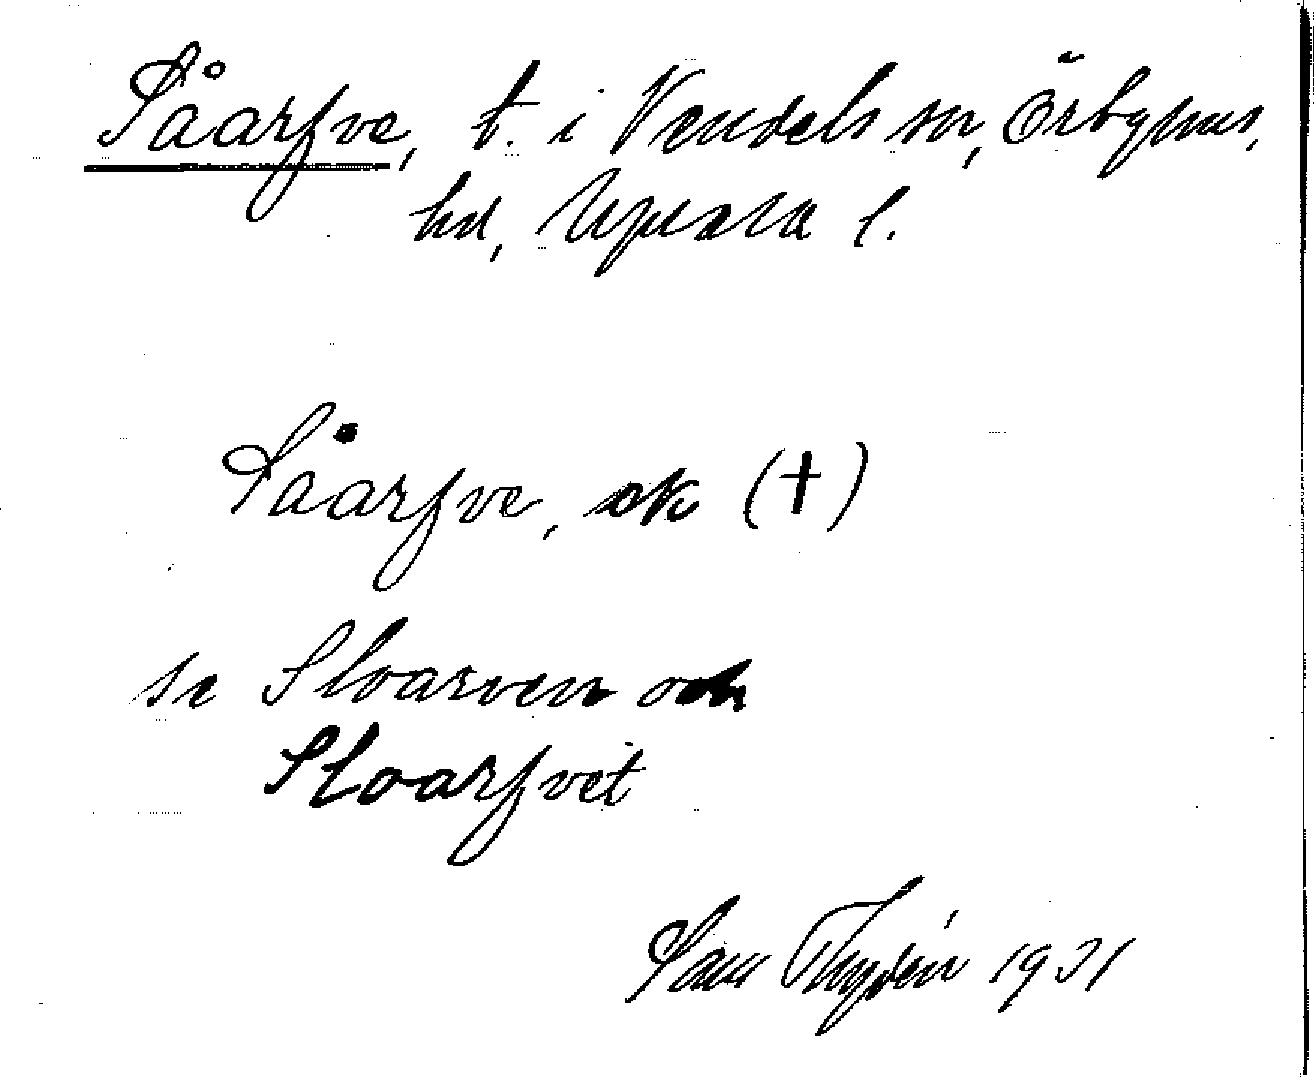 Såarfve, t. i Vendels sn, Örbyhus
hd, Upsala l.
Såarfve, ak (†)
se Sloarven och
Sloarfvet
Sam Thydén 1931